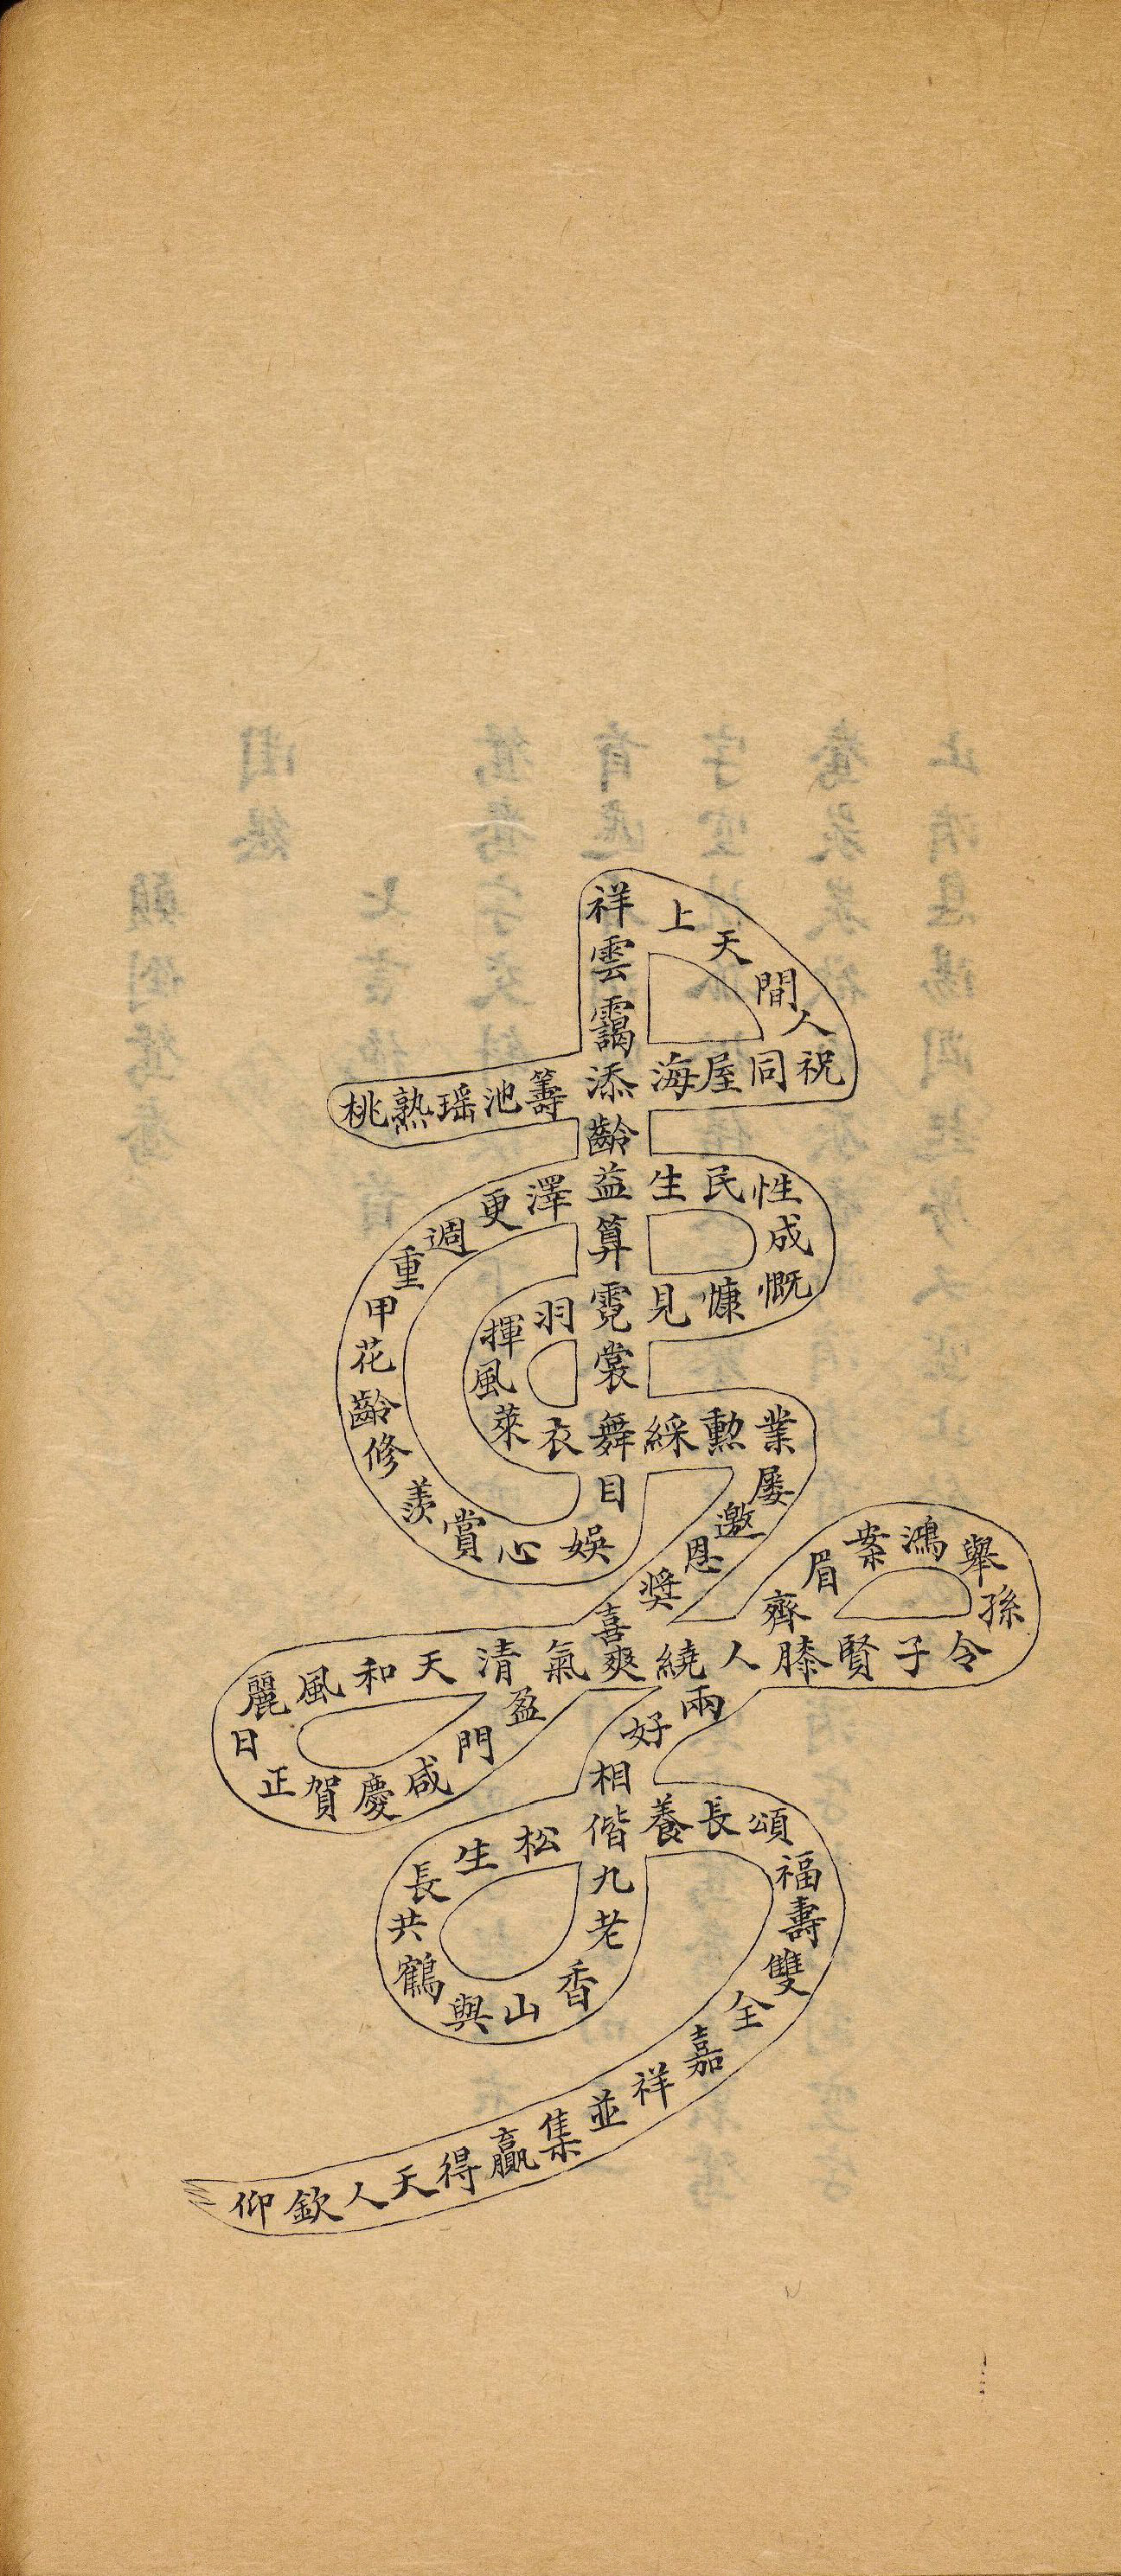 桃熟瑶池籌添海屋同祝人間天上祥雲靄
齡益算霓裳舞目娛心賞羨修齡花甲重週更澤
生民性成慨慷見
羽揮風萊衣
綵勳業屢邀恩獎喜盈門咸慶賀正日麗風和天清氣爽
繞人膝賢子令孫舉鴻案眉齊
兩好相偕九老香山與鶴共長生松
養長頌福壽雙全嘉祥並集贏得天人欽仰